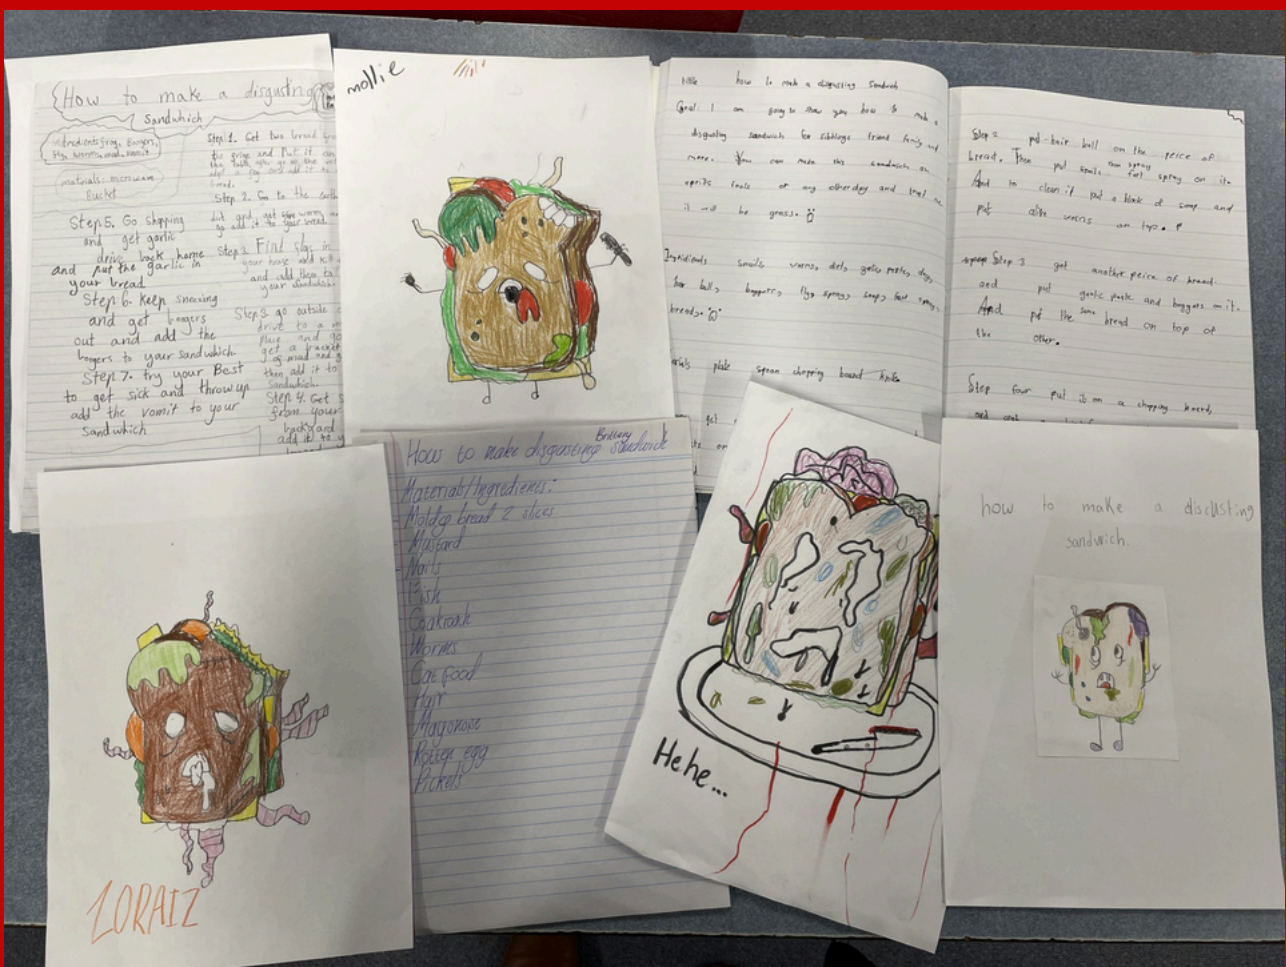 How to make a disgusting
Sandwhich
materials: microwave
Bucket
Step 1. Get two bread
Step 2. Go to the
Step 5. Go shopping
and get garlic
drive back home
and put the garlic in
your bread
Step 6. Keep sneezing
and get boogers
out and add the
bogers to your sandwhich.
Step 7. try your Best
to get sick and throw up
add the vomit to your
Sandwhich
Step 3. Find flys in
your house and kill
and add them to
your Sandwhich.
Step 3. go outside
drive to a
place and go
get a bucket
of mud and
then add it to
Sandwhich.
Step 4. Get
from your
backyard
add it to
mollie
title how to make a disgusting sandwich
Goal: I am going to show you how to make a
disgusting sandwich for sibblings friend family and
more. You can make this sandwich on
aprils fools or any other day and trust me
it will be gross.
Ingridients snails, worms, dirt, garlic paste,
hair ball, boggers, fly spray, soap, fart spray,
bread.
plate spoon chopping board knife
Step 2 put hair ball on the peice of
bread. Then put snails. fart spray on it.
And to clean it put a block of soap and
put alive worms on top.
Step 3 get another peice of bread
and put garlic paste and boggers on it.
And put the same bread on top of
the other.
Step four put it on a chopping board,
ZORAIZ
Brittany
How to make disgusting sandwich
Materials/Ingredients:
Moldey bread 2 slices
Mustard
Nails
Fish
Coakroah
Worms
Cat food
Hair
Mayonose
Rotten egg
Pickels
Hehe...
how to make a discusting
sandwich.